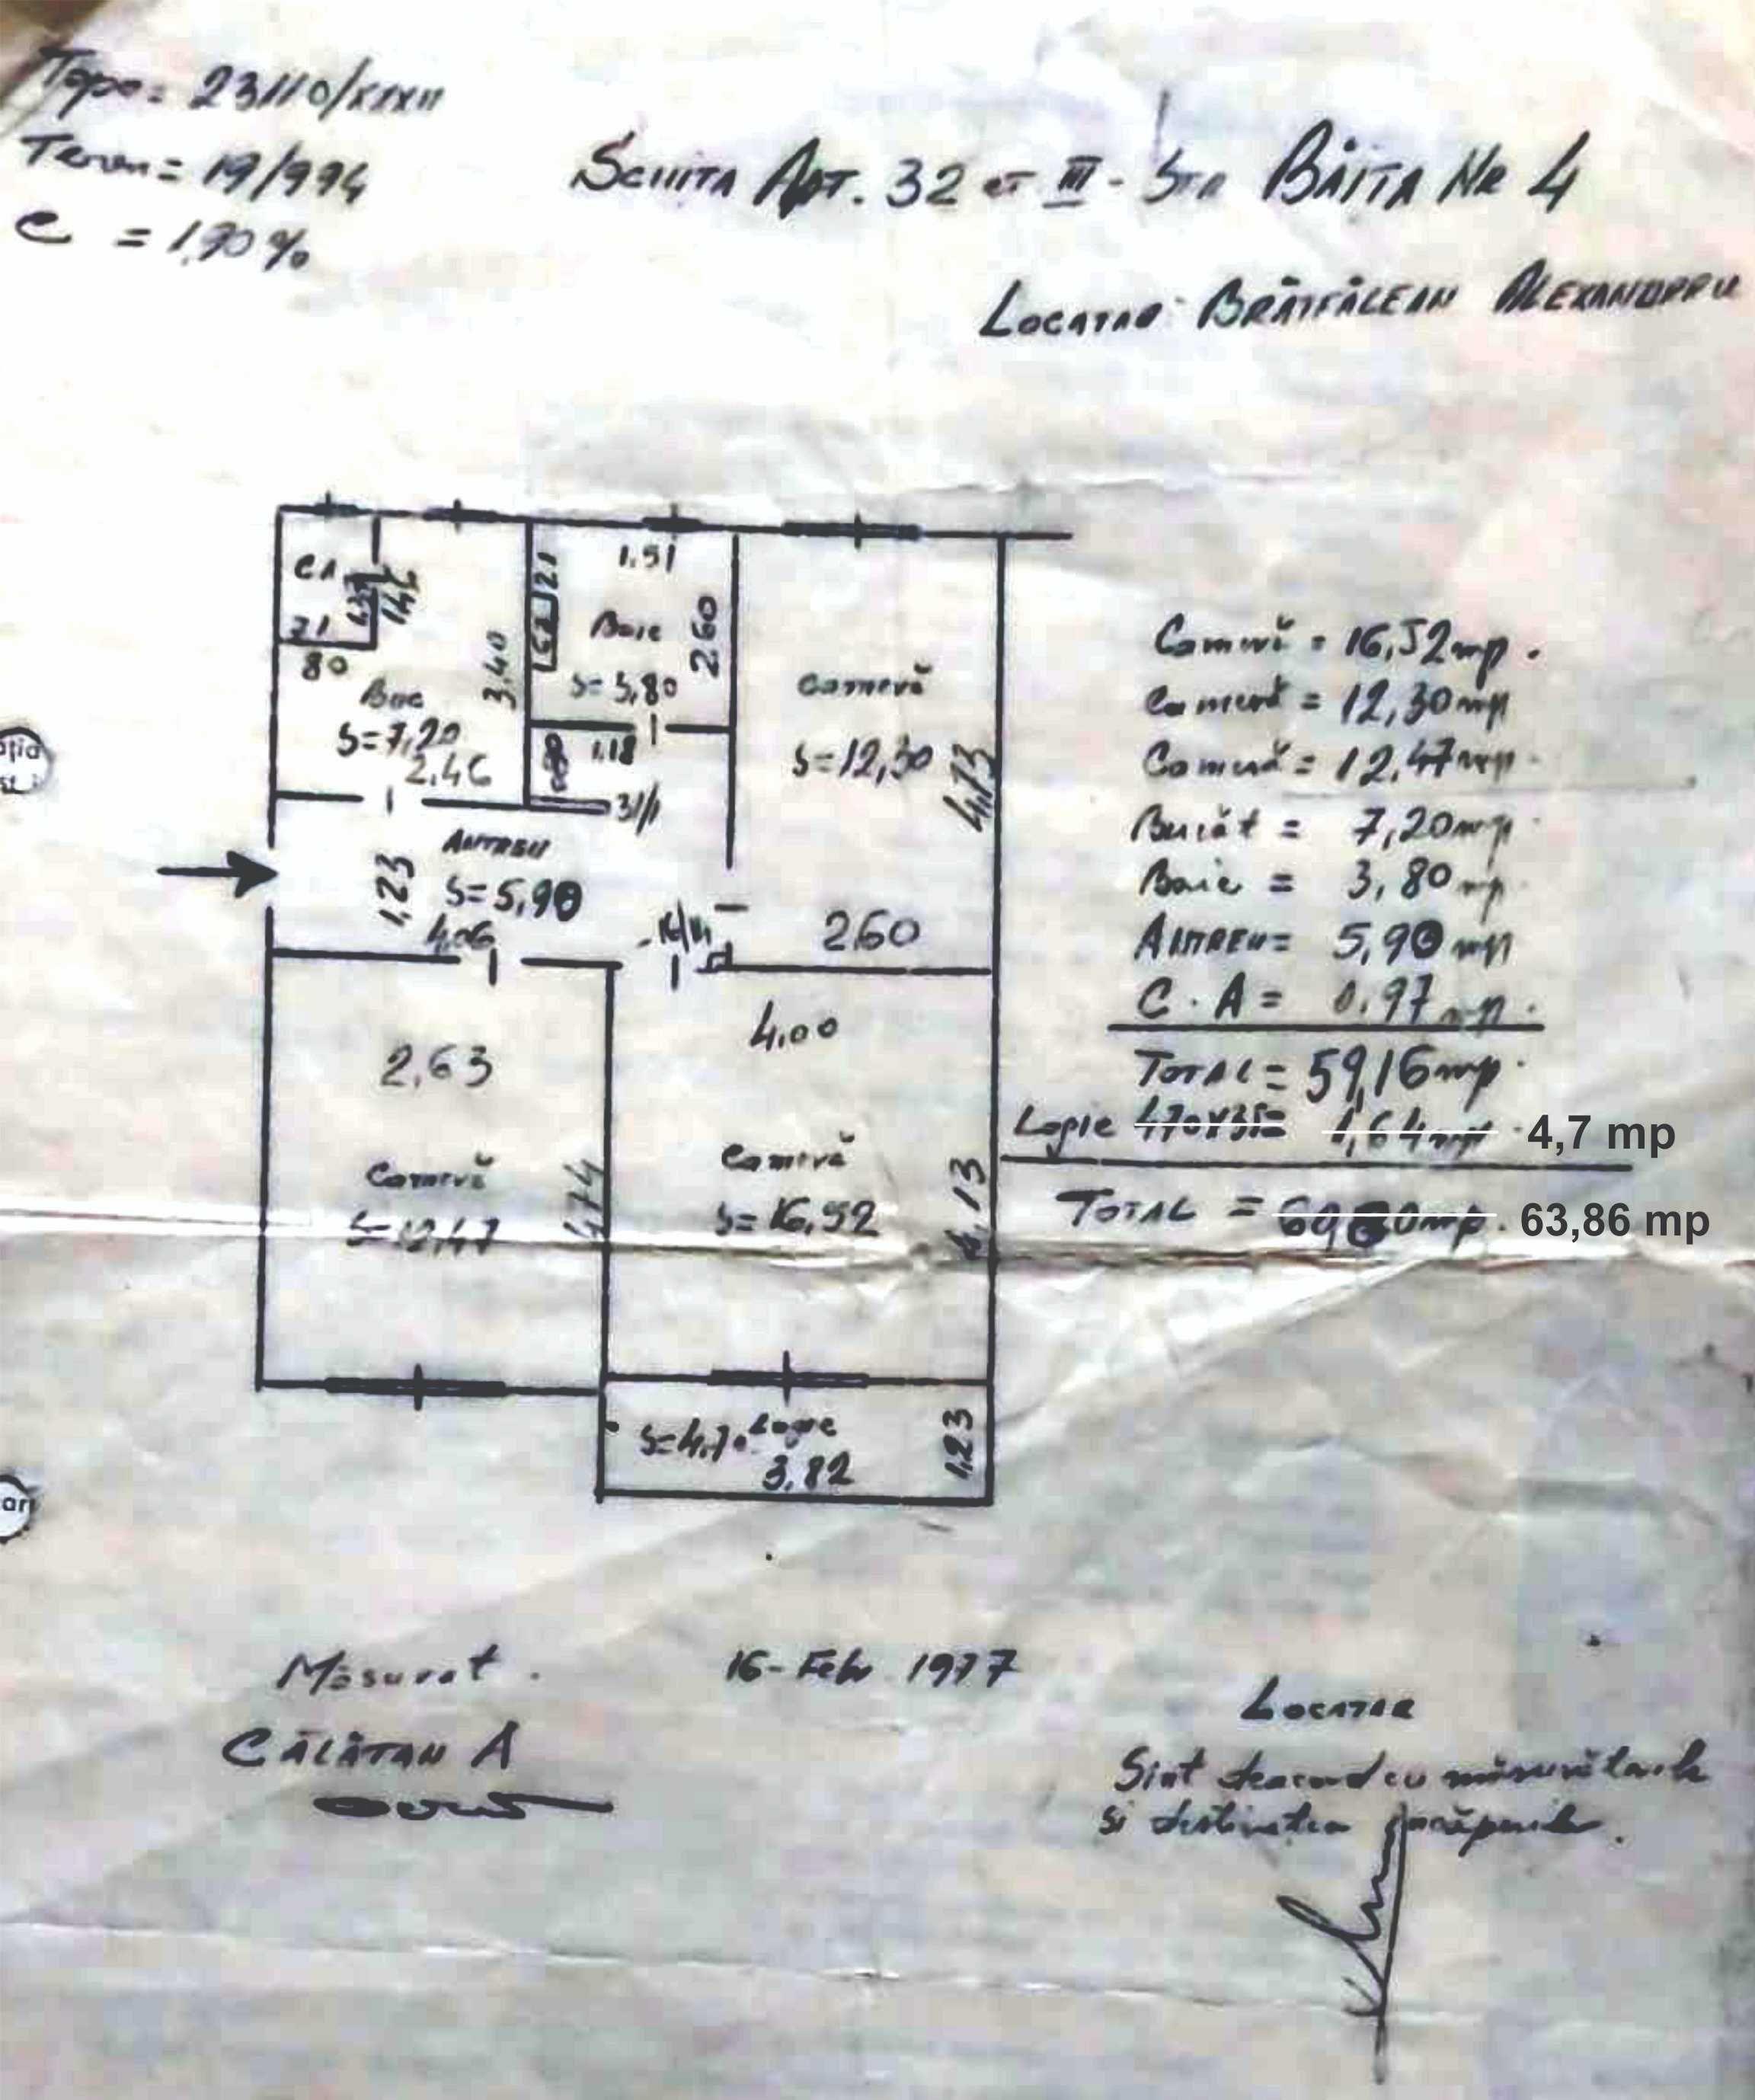 Topo = 23110/XXXII
Teren = 19/994
C = 1,90 %
SCHITA APT. 32 ET III - STR BĂIȚA NR 4
LOCATAR BRĂTFĂLEAN ALEXANDRRU
1.51
CA
1.21
1.46
71
80
Baie
2.60
3.40
S= 3,80
Buc
S=7,20
2.46
1.18
Cameră
S=12,30
4,73
ANTREU
1,23
S=5,90
4,06
2.60
4,00
2,63
Cameră
S=12,47
4,74
Cameră
S=16,52
4,13
S=4,70 Logie
3,82
1,23
Cameră = 16,52mp.
Cameră = 12,30mp
Cameră = 12,47mp.
Bucăt = 7,20mp.
Baie = 3,80mp.
ANTREU = 5,90mp
C.A = 0,97mp.
TOTAL = 59,16mp.
Logie 1,64mp. 4,7 mp
TOTAL = 60,80mp. 63,86 mp
Măsurat.
16-Feb 1977
CĂLĂTAN A
LOCATAR
Sint deacord cu măsurătorile
si destinatia încăperilor.
ația
ari